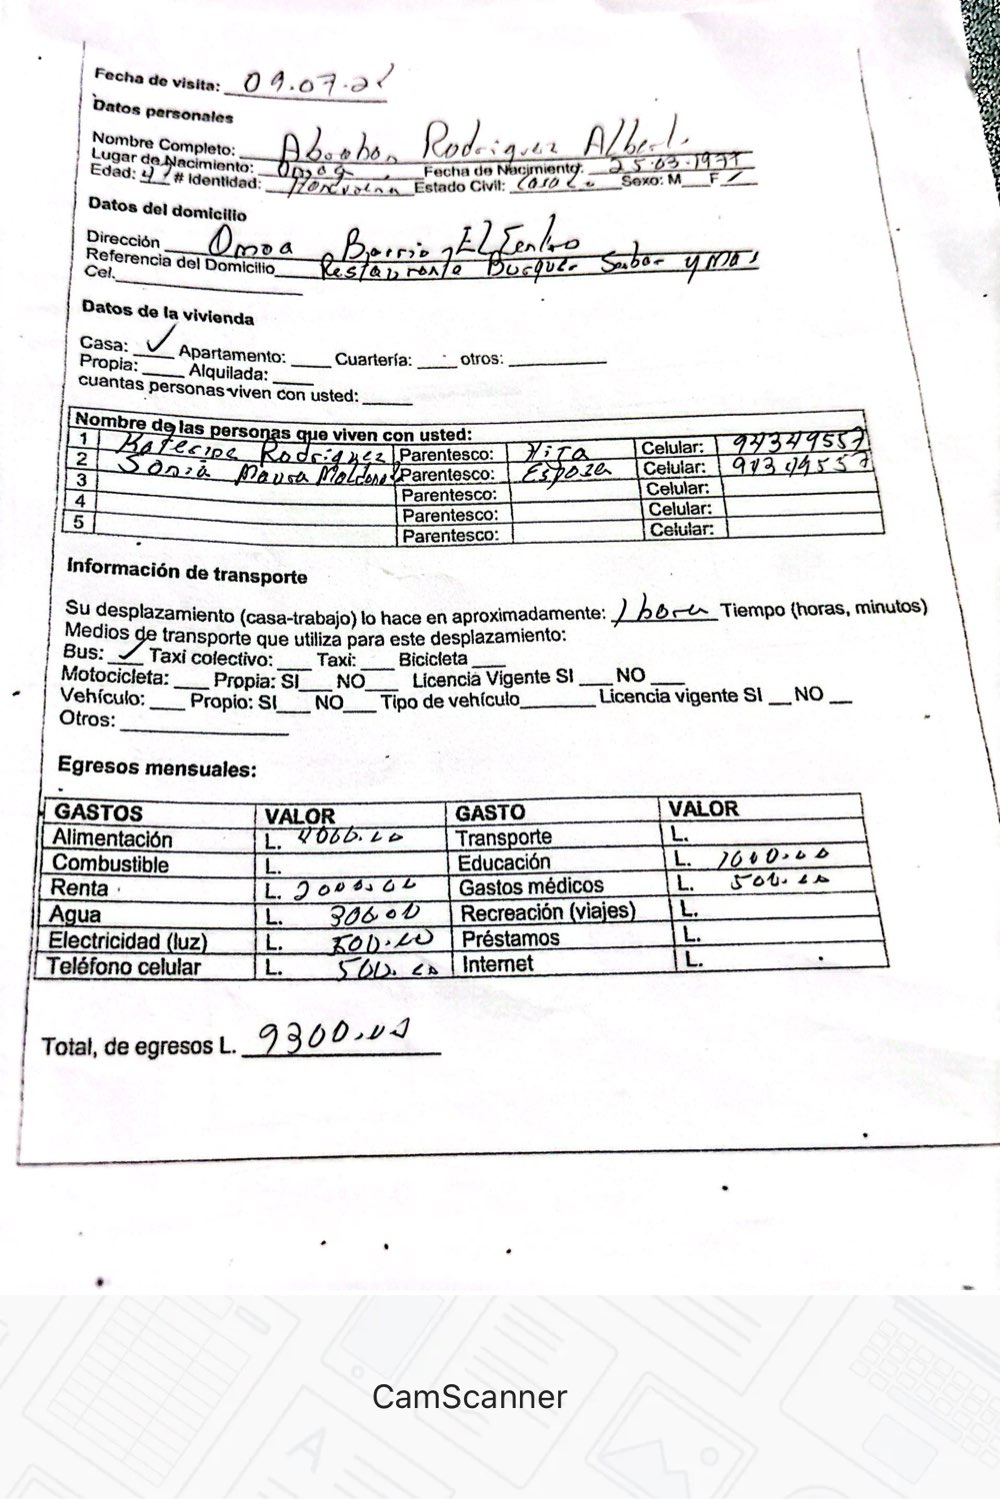 Fecha de visita: 09.07.21
Datos personales
Nombre Completo: Rodriguez Albert.
Lugar de Nacimiento: Omoa, Fecha de Nacimiento: 25.03.1977
Edad: # Identidad: Estado Civil: Sexo: M F ✓
Datos del domicilio
Dirección Omoa Barrio El Centro
Referencia del Domicilio Restaurante Buque Sabor y Mas
Cel.
Datos de la vivienda
Casa: ✓ Apartamento: Cuartería: otros:
Propia: Alquilada:
cuantas personas viven con usted:
Nombre de las personas que viven con usted:
1 Katerine Rodriguez Parentesco: Hija Celular: 94349557
2 Sonia Parentesco: Esposa Celular:
3 Parentesco: Celular:
4 Parentesco: Celular:
5 Parentesco: Celular:
Información de transporte
Su desplazamiento (casa-trabajo) lo hace en aproximadamente: 1 hora Tiempo (horas, minutos)
Medios de transporte que utiliza para este desplazamiento:
Bus: ✓ Taxi colectivo: Taxi: Bicicleta
Motocicleta: Propia: SI NO Licencia Vigente SI NO
Vehículo: Propio: SI NO Tipo de vehículo Licencia vigente SI NO
Otros:
Egresos mensuales:
GASTOS VALOR GASTO VALOR
Alimentación L. 4000.00 Transporte L.
Combustible L. Educación L. 1000.00
Renta L. 2000.00 Gastos médicos L. 500.00
Agua L. 300.00 Recreación (viajes) L.
Electricidad (luz) L. Préstamos L.
Teléfono celular L. 500.00 Internet L.
Total, de egresos L. 9300.00
CamScanner